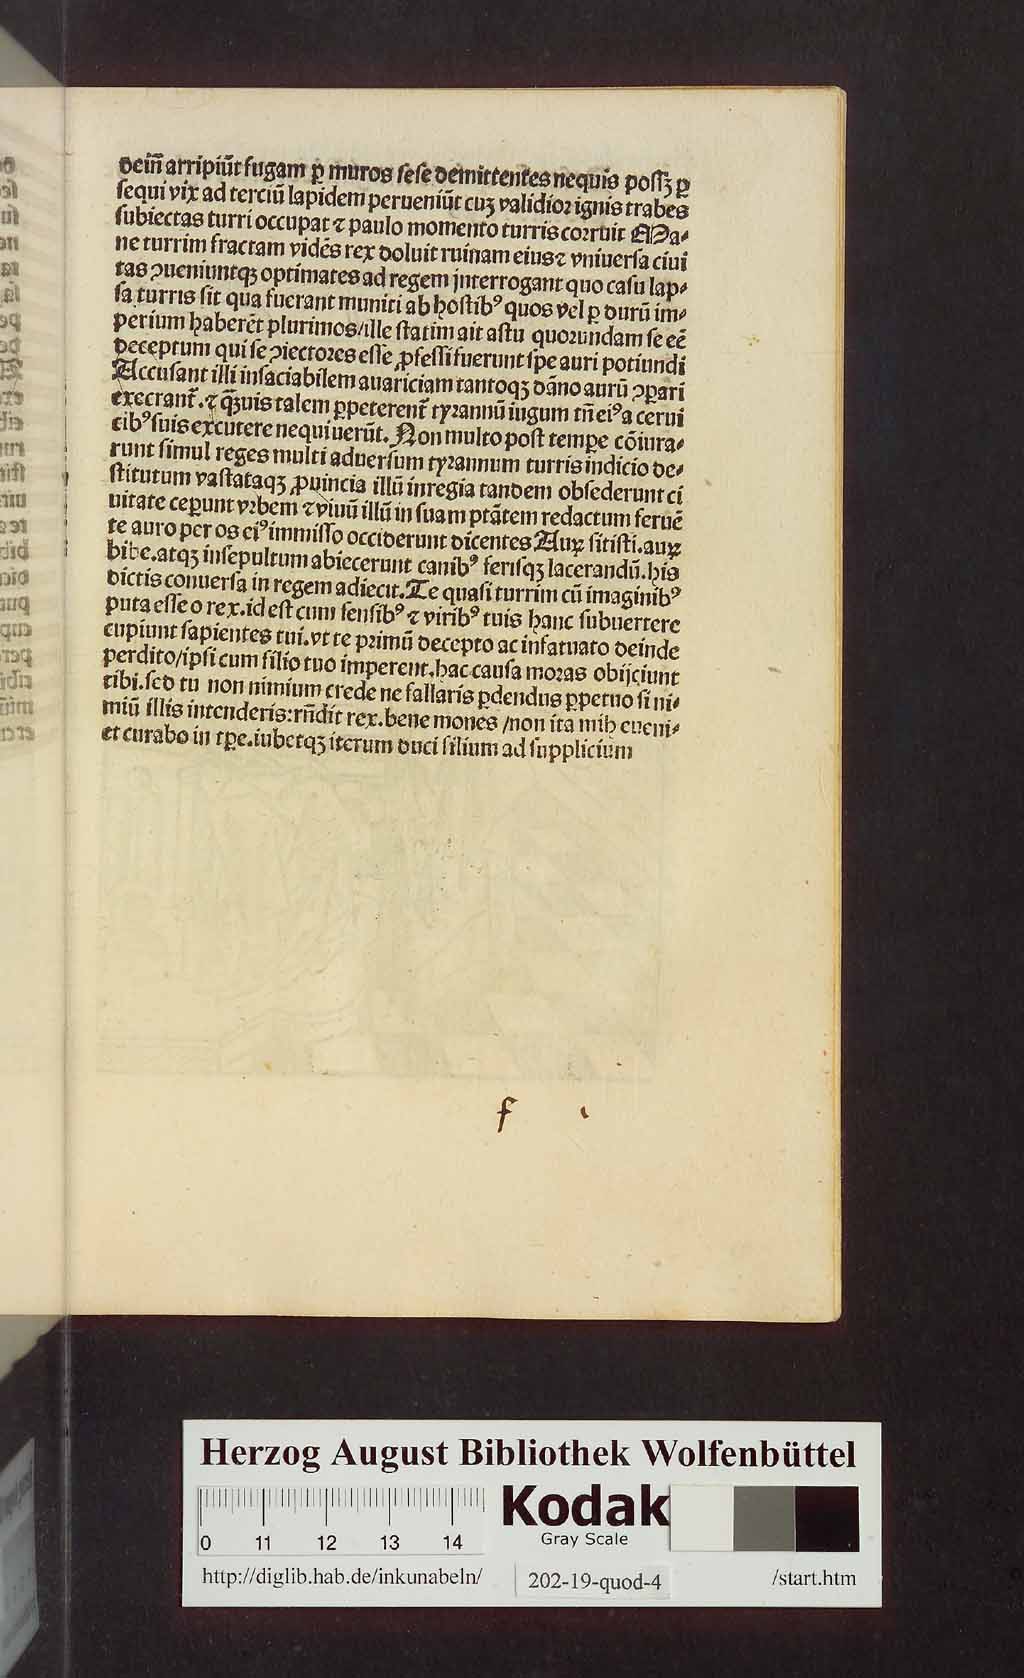 deiñ arripiūt fugam ꝑ muros sese demittentes nequis possꝫ ꝑ
sequi vix ad terciū lapidem perueniūt cuꝫ validior ignis trabes
subiectas turri occupat ⁊ paulo momento turris corruit Ma⸗
ne turrim fractam vidēs rex doluit ruinam eius ⁊ vniuersa ciui
tas ↄueniuntqꝫ optimates ad regem interrogant quo casu lap⸗
sa turris sit qua fuerant muniti ab hostibꝰ quos vel ꝑ durū im⸗
perium haberēt plurimos/ille statim ait astu quorundam se eē
deceptum qui se ↄiectores esse ꝓfessi fuerunt spe auri potiundi
Accusant illi insaciabilem auariciam tantoqꝫ dāno aurū ↄꝑari
execrant̄. ⁊ qꝫuis talem ꝑpeterent̄ tyrannū iugum tn̄ eiꝰ a cerui
cibꝰ suis excutere nequiuerūt. Non multo post tempe cōiura⸗
runt simul reges multi aduersum tyrannum turris indicio de⸗
stitutum vastataqꝫ ꝓuincia illū in regia tandem obsederunt ci
uitate ceꝑunt vrbem ⁊ viuū illū in suam ptātem redactum feruē
te auro per os eiꝰ immisso occiderunt dicentes Auꝝ sitisti.auꝝ
bibe.atqꝫ insepultum abiecerunt canibꝰ ferisqꝫ lacerandū. his
dictis conuersa in regem adiecit. Te quasi turrim cū imaginibꝰ
puta esse o rex. id est cum sensibꝰ ⁊ viribꝰ tuis hanc subuertere
cupiunt sapientes tui. vt te primū decepto ac infatuato deinde
perdito/ipsi cum filio tuo imperent. hac causa moras obijciunt
tibi. sed tu non nimium crede ne fallaris ꝑdendus ꝑpetuo si ni⸗
miū illis intenderis: rn̄dit rex. bene mones /non ita mih eueni⸗
et curabo in tꝑe. iubetqꝫ iterum duci filium ad supplicium
f ı
Herzog August Bibliothek Wolfenbüttel
0 11 12 13 14
Kodak
Gray Scale
http://diglib.hab.de/inkunabeln/ 202-19-quod-4 /start.htm